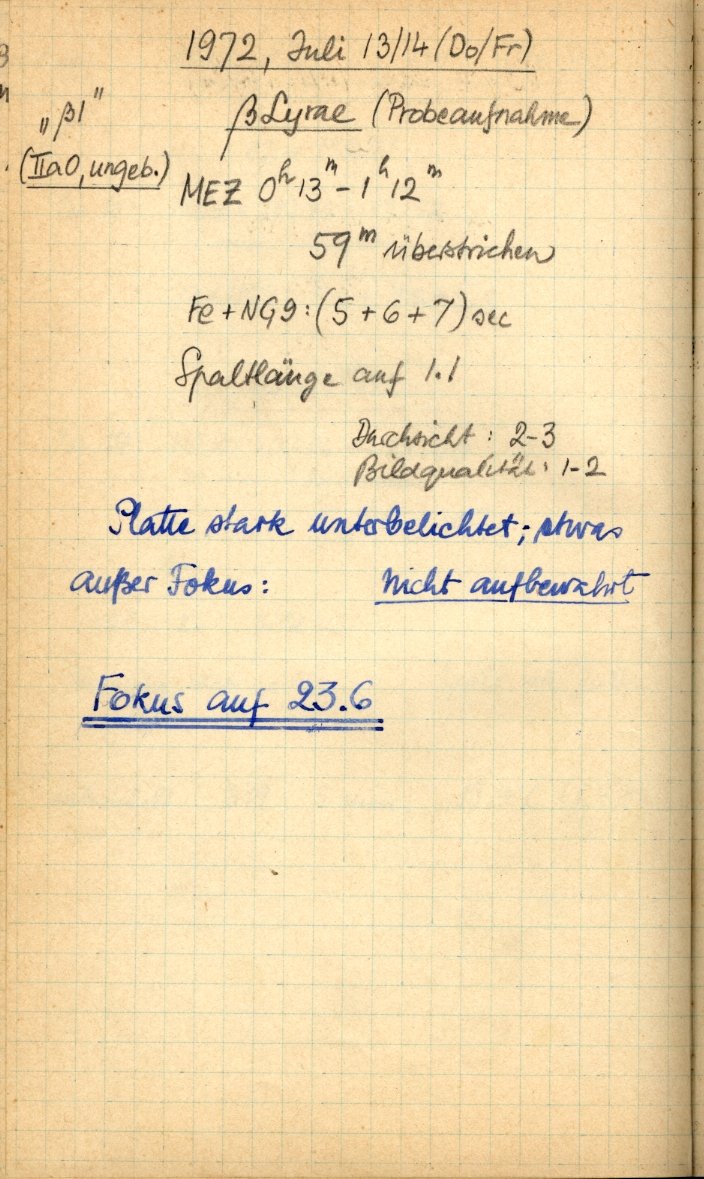 1972, Juli 13/14 (Do/Fr)
„β1“ β Lyrae (Probeaufnahme)
(IIaO, ungeb.) MEZ 0ʰ13ᵐ - 1ʰ12ᵐ
59ᵐ überstrichen
Fe + NG9: (5 + 6 + 7) sec
Spaltlänge auf 1.1
Durchsicht: 2-3
Bildqualität: 1-2
Platte stark unterbelichtet; etwas
außer Fokus: nicht aufbewahrt
Fokus auf 23.6